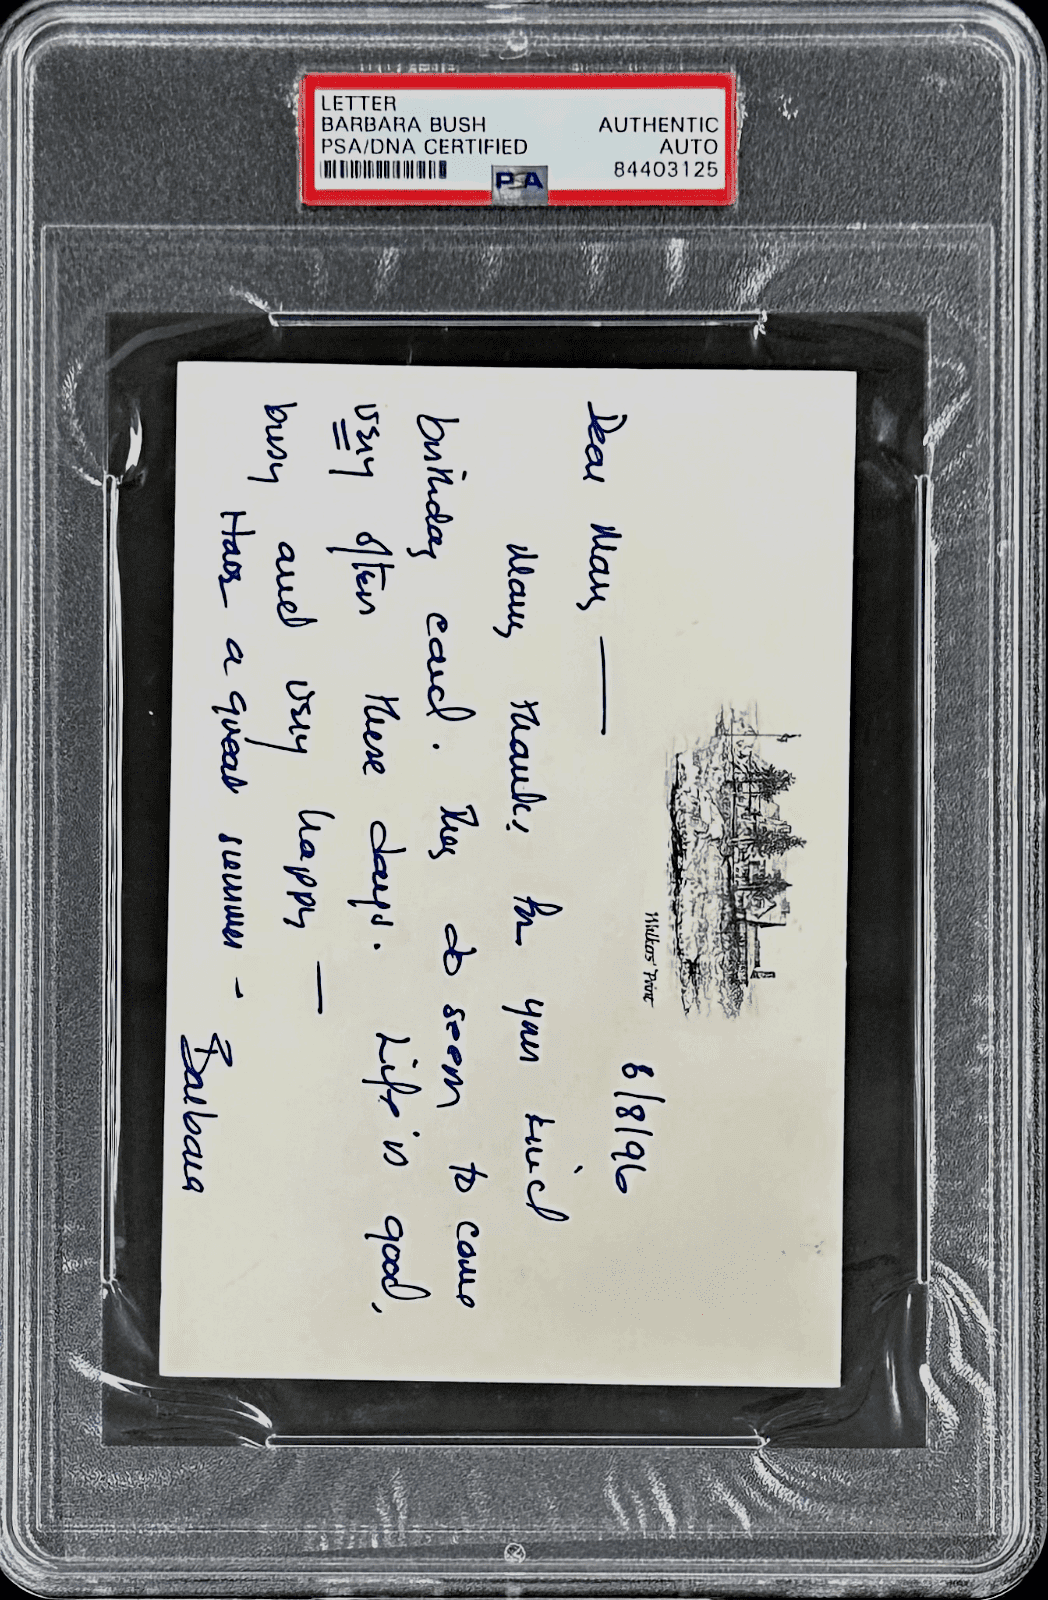 LETTER
BARBARA BUSH
PSA/DNA CERTIFIED
AUTHENTIC
AUTO
84403125
PSA
Walker's Point
6/8/96
Dear Mary —
Many thanks for your kind
birthday card. They do seem to come
very often these days. Life is good,
busy and very happy —
Have a great summer -
Barbara